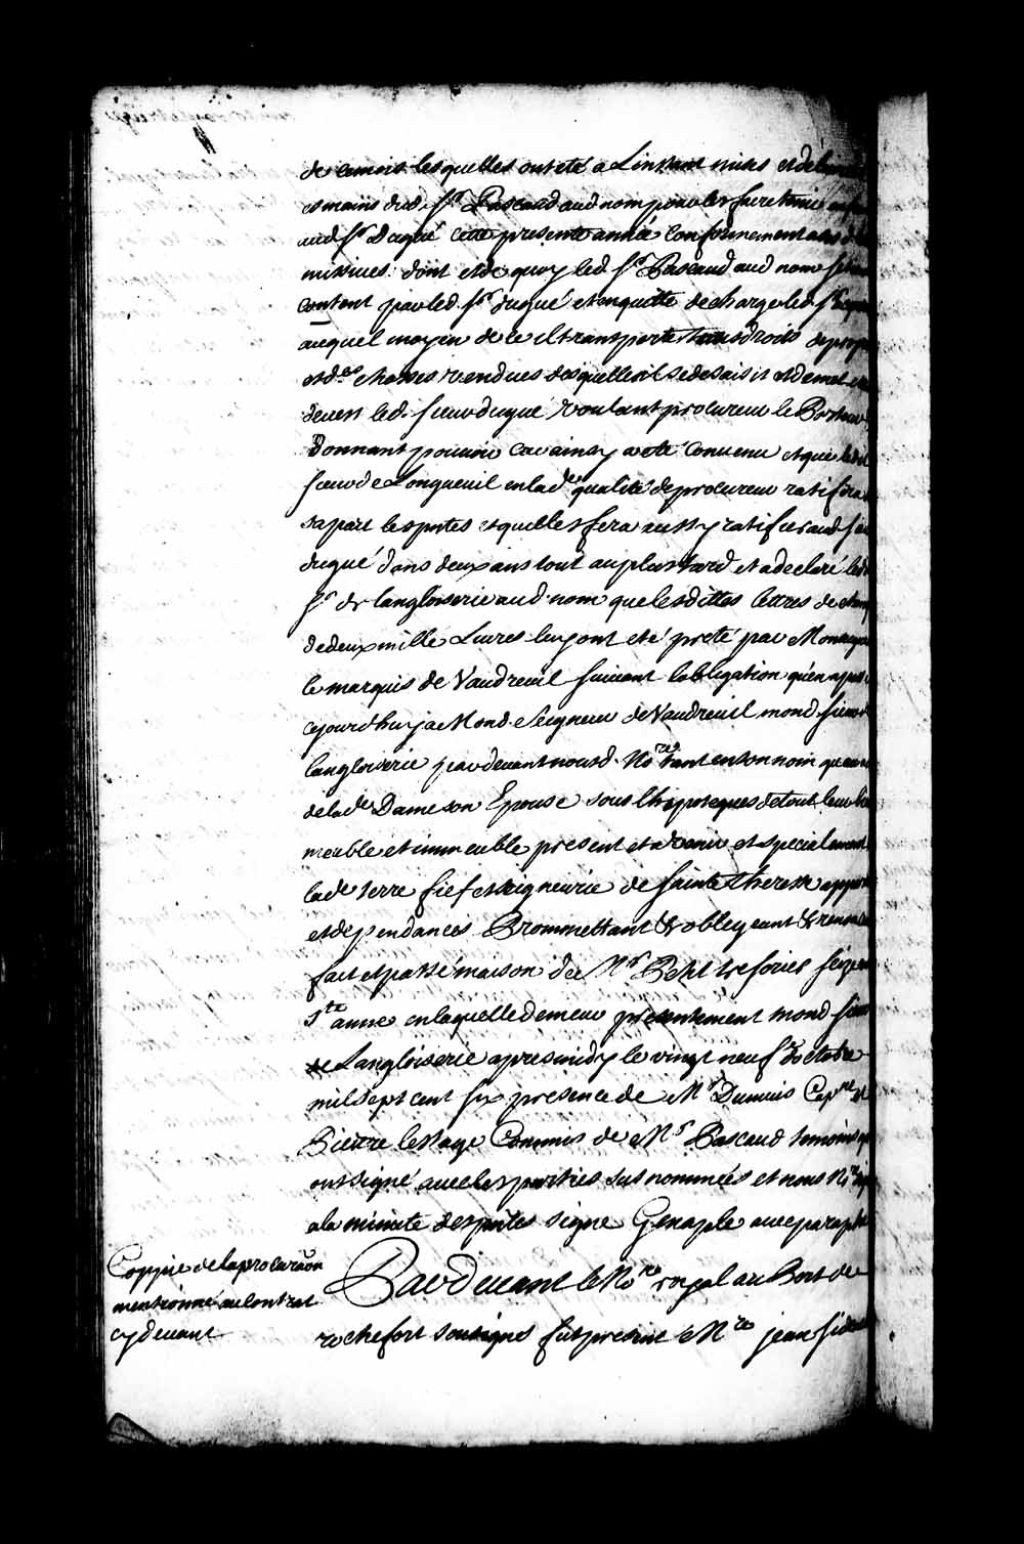 de lesquelles ont eté a Linstant mises et
es mains dud. Sr. Pascaud aud nom pour les faire tenir
aud Sr Dugué cette presente année Conformement
missives. dont et de quoy led Sr. Pascaud aud nom
content par led. Sr dugué et enquitte decharge led. Sr
auquel moyen de ce il transporte tous droits
et des choses vendues desquelles il sedesaisit et demet
devers led. sieur dugué voulant procureur le Porteur
Donnant pouvoir Car ainsy a eté Convenu et que
sieur de Longueuil en lade. qualité de procureur ratifira
sapart les pntes et quelles fera aussy ratifier aud
dugué dans deux ans tout au plus tard et a declaré led
Sr. de langloiserie aud. nom que lesdittes lettres de
de deux mille Livres luy ont eté preté par
le marquis de Vaudreuil suivant lobligation qu'en a
cejourdhuy a Mond. Seigneur de Vaudreuil mond. sieur
langloiserie par devant nousd. Nores tant en son nom que
de lade Dame son Epouse sous lhipoteques de tout leur
meuble et immeuble present et avenir et specialement
lade terre fief et seigneurie de sainte therese
et dependances Prommettant & obligeant &
fait et passé maison de Mr Petit tresorier
Ste anne en laquelle demeure presentement mond.
de Langloiserie apres midy le vingt neuf d'octobre
mil sept cent six presence de Mr Dumuis Capne et
Pierre lesage Commis de Mr Pascaud temoins
ont signé avec les parties sus nommées et nous Nre
a la minute des pntes signé Genaple avec paraphe
Coppie de la procuraon
mentionné au Contrat
cy devant
Pardevant le Nore royal au Port de
rochefort sousignes fut present Mre jean